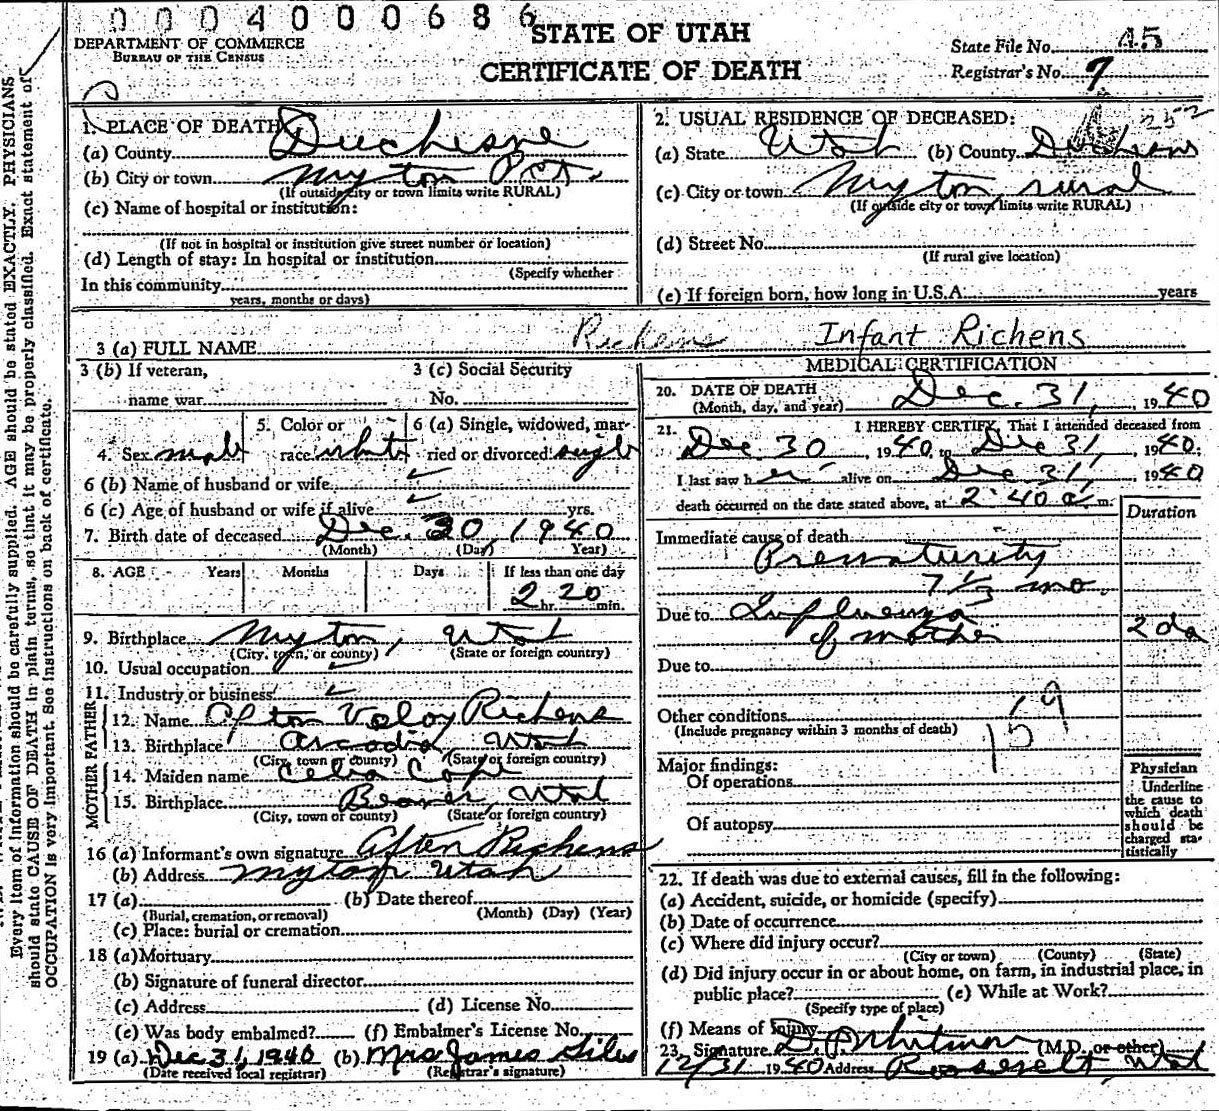 0004000686
STATE OF UTAH
CERTIFICATE OF DEATH
DEPARTMENT OF COMMERCE
BUREAU OF THE CENSUS
State File No. 45
Registrar's No. 7
1. PLACE OF DEATH
(a) County Duchesne
(b) City or town Myton Pct.
(If outside city or town limits write RURAL)
(c) Name of hospital or institution:
(If not in hospital or institution give street number or location)
(d) Length of stay: In hospital or institution
(Specify whether
In this community
years, months or days)
2. USUAL RESIDENCE OF DECEASED:
252
(a) State Utah (b) County Duchesne
(c) City or town Myton rural
(If outside city or town limits write RURAL)
(d) Street No.
(If rural give location)
(e) If foreign born, how long in U.S.A. years
3 (a) FULL NAME Richens Infant Richens
3 (b) If veteran,
name war
3 (c) Social Security
No.
4. Sex male
5. Color or
race white
6 (a) Single, widowed, mar-
ried or divorced single
6 (b) Name of husband or wife
6 (c) Age of husband or wife if alive yrs.
7. Birth date of deceased Dec. 30, 1940
(Month) (Day) Year)
8. AGE Years Months Days If less than one day
2 hr. 20 min.
9. Birthplace Myton, Utah
(City, town, or county) (State or foreign country)
10. Usual occupation
11. Industry or business
FATHER
12. Name Afton Veloy Richens
13. Birthplace Arcadia, Utah
(City, town or county) (State or foreign country)
MOTHER
14. Maiden name Celia Cope
15. Birthplace Beaver, Utah
(City, town or county) (State or foreign country)
16 (a) Informant's own signature Afton Richens
(b) Address Myton Utah
17 (a) (b) Date thereof
(Burial, cremation, or removal) (Month) (Day) (Year)
(c) Place: burial or cremation
18 (a) Mortuary
(b) Signature of funeral director
(c) Address (d) License No.
(e) Was body embalmed? (f) Embalmer's License No.
19 (a) Dec 31, 1940 (b) Mrs James Liles
(Date received local registrar) (Registrar's signature)
MEDICAL CERTIFICATION
20. DATE OF DEATH Dec. 31, 1940
(Month, day, and year)
21. I HEREBY CERTIFY, That I attended deceased from
Dec 30, 1940, to Dec 31, 1940.
I last saw h er alive on Dec 31, 1940
death occurred on the date stated above, at 2:40 a. m.
Duration
Immediate cause of death
Prematurity
7 1/3 mo.
Due to Influenza
of mother 2 da
Due to
Other conditions
(Include pregnancy within 3 months of death)
159
Major findings:
Of operations
Of autopsy
Physician
Underline
the cause to
which death
should be
charged sta-
tistically
22. If death was due to external causes, fill in the following:
(a) Accident, suicide, or homicide (specify)
(b) Date of occurrence
(c) Where did injury occur?
(City or town) (County) (State)
(d) Did injury occur in or about home, on farm, in industrial place, in
public place? (e) While at Work?
(Specify type of place)
(f) Means of Injury
23. Signature D. P. Whitmore (M.D. or other)
12/31 1940 Address Roosevelt, Utah
Every item of information should be carefully supplied. AGE should be stated EXACTLY. PHYSICIANS
should state CAUSE OF DEATH in plain terms, so that it may be properly classified. Exact statement of
OCCUPATION is very important. See instructions on back of certificate.